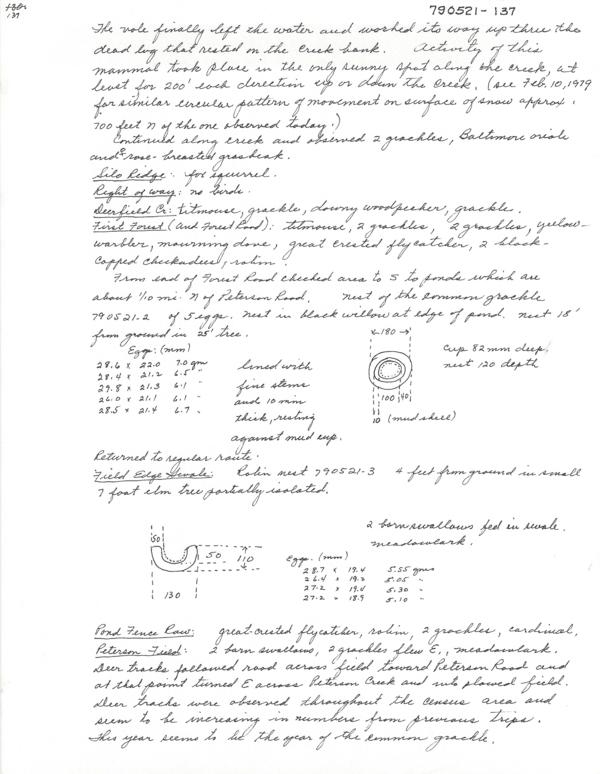 790521-137
The vole finally left the water and worked its way up three the
dead log that rested on the creek bank. Activity of this
mammal took place in the only sunny spot along the creek, at
least for 200' each direction up or down the creek. (see Feb. 10, 1979
for similar circular pattern of movement on surface of snow approx.
700 feet N of the one observed today.)
Continued along creek and observed 2 grackles, Baltimore oriole
and ♂ rose-breasted grosbeak.
Silo Ridge: fox squirrel.
Right of way: no birds.
Deerfield Cr: titmouse, grackle, downy woodpecker, grackle.
First Forest (and Forest Road): titmouse, 2 grackles, 2 grackles, yellow-
warbler, mourning dove, great crested flycatcher, 2 black-
capped chickadees, robin.
From end of Forest Road checked area to S to ponds which are
about 1/10 mi. N of Peterson Road. nest of the common grackle
790521-2 of 5 eggs. nest in black willow at edge of pond. nest 18'
from ground in 25' tree.
Eggs: (mm)
28.6 x 22.0 7.0 gm
28.4 x 21.2 6.5 "
29.8 x 21.3 6.1 "
26.0 x 21.1 6.1 "
28.5 x 21.4 6.7 "
lined with
fine stems
and 10 mm
thick, resting
against mud cup.
180
100 40
10 (mud shell)
cup 82 mm deep,
nest 120 depth
Returned to regular route.
Field Edge Swale: Robin nest 790521-3 4 feet from ground in small
7 foot elm tree partially isolated.
50
50 110
130
2 barn swallows fed in swale.
meadowlark.
Eggs. (mm)
28.7 x 19.4 5.55 gms
26.4 x 19.2 5.05 "
27.2 x 19.4 5.30 "
27.2 x 18.9 5.10 "
Pond Fence Row: great-crested flycatcher, robin, 2 grackles, cardinal,
Peterson Field: 2 barn swallows, 2 grackles flew E, meadowlark.
Deer tracks followed road across field toward Peterson Road and
at that point turned E across Peterson Creek and into plowed field.
Deer tracks were observed throughout the census area and
seem to be increasing in numbers from previous trips.
This year seems to be the year of the common grackle.